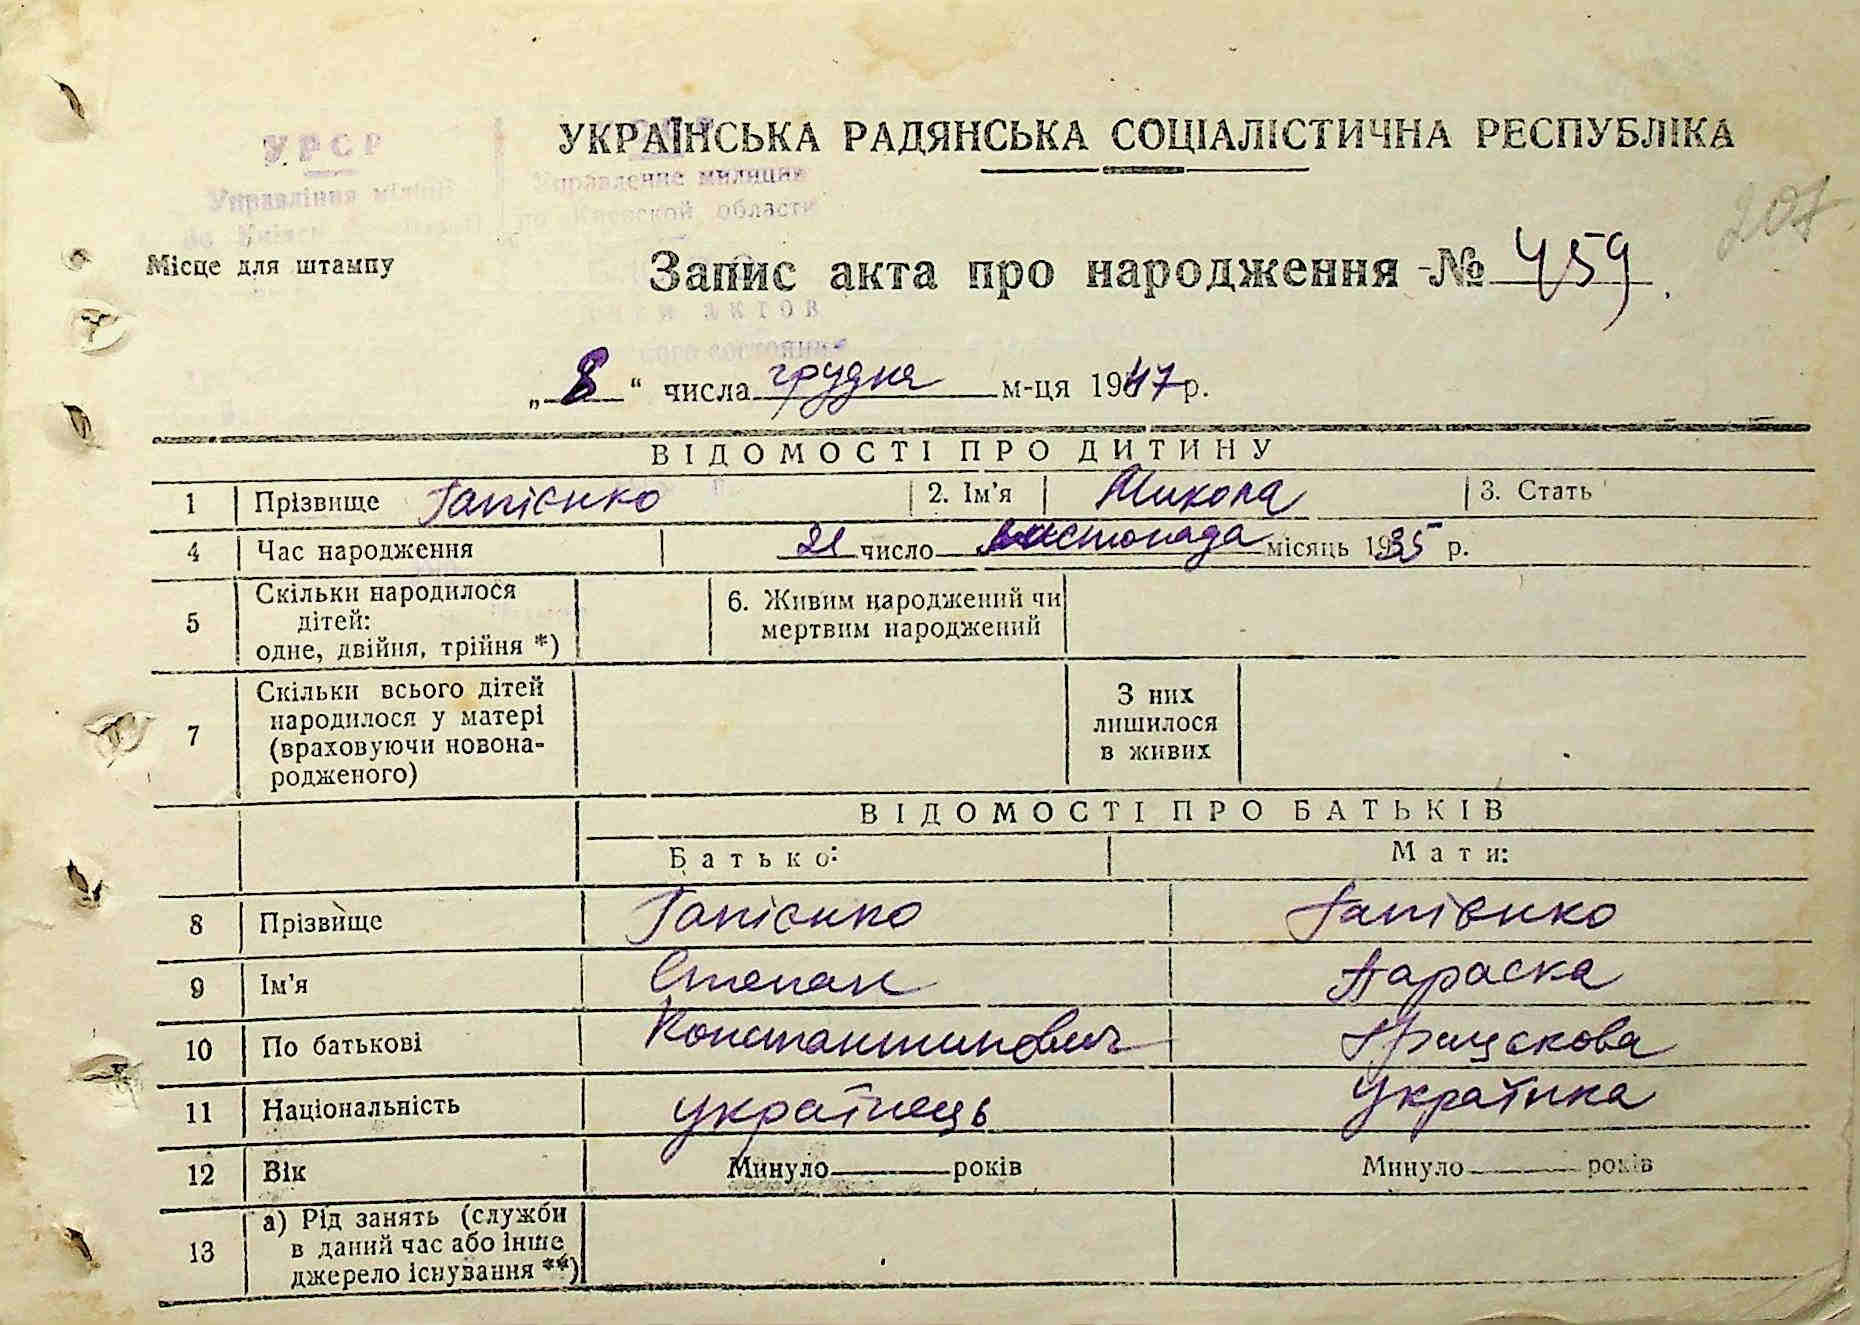 УРСР
Управління міліції Управление милиции
по Київській області по Киевской области
УКРАЇНСЬКА РАДЯНСЬКА СОЦІАЛІСТИЧНА РЕСПУБЛІКА
207
Місце для штампу
Запис акта про народження № 459
актов
„8“ числа грудня м-ця 1947 р.
ВІДОМОСТІ ПРО ДИТИНУ
1 Прізвище Гапієнко 2. Ім'я Микола 3. Стать
4 Час народження 21 число листопада місяць 1935 р.
5 Скільки народилося дітей: одне, двійня, трійня *) 6. Живим народжений чи мертвим народжений
7 Скільки всього дітей народилося у матері (враховуючи новонародженого) З них лишилося в живих
ВІДОМОСТІ ПРО БАТЬКІВ
Батько: Мати:
8 Прізвище Гапієнко Гапієнко
9 Ім'я Степан Параска
10 По батькові Константинович Грицькова
11 Національність українець Українка
12 Вік Минуло років Минуло років
13 а) Рід занять (служби в даний час або інше джерело існування **)